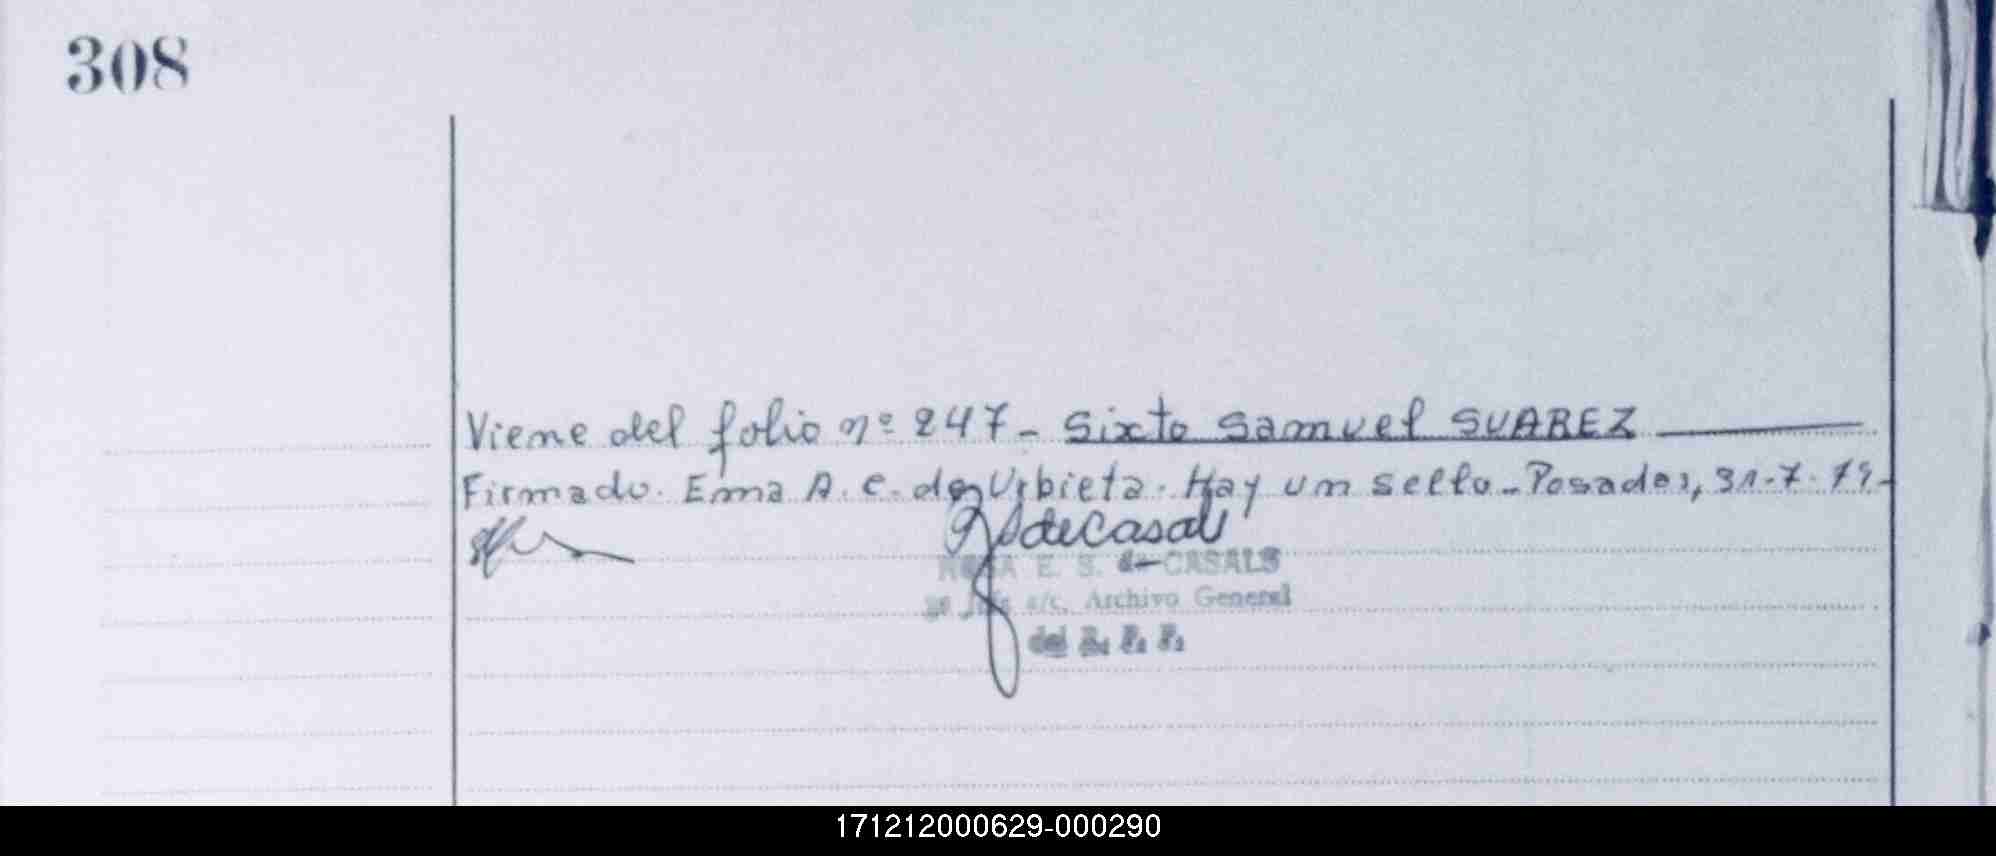 308
Viene del folio nº 247 - Sixto Samuel SUAREZ
Firmado. Ema A. C. de Urbieta. Hay un sello - Posadas, 31-7-79-
de Casal
ROSA E. S. de CASALS
a/c. Archivo General
del R. P. P.
171212000629-000290